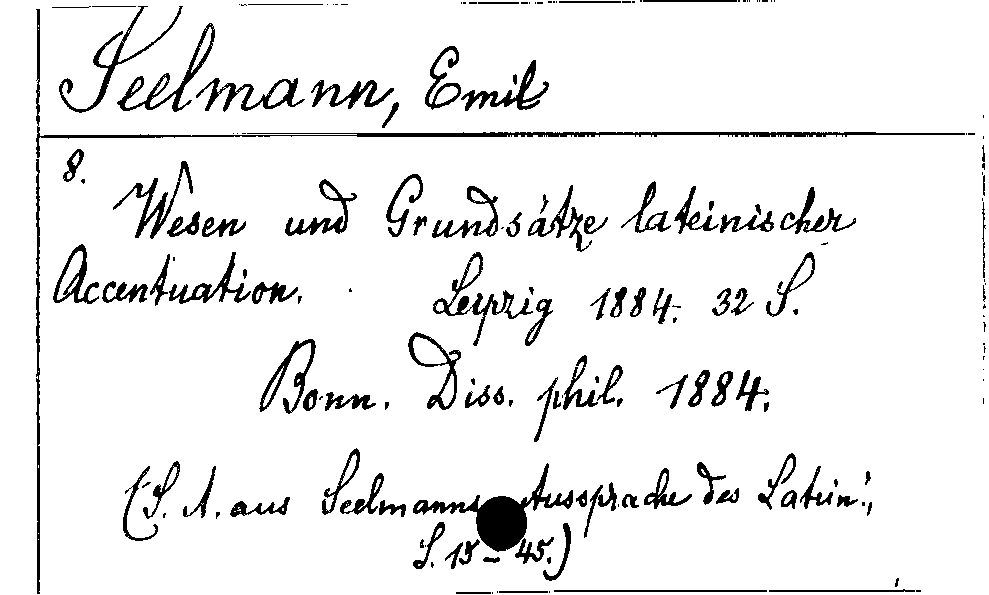 Seelmann, Emil
8.
Wesen und Grundsätze lateinischer
Accentuation. Leipzig 1884. 32 S.
Bonn. Diss. phil. 1884.
(S. A. aus Seelmanns Aussprache des Latein.,
S. 15-45.)